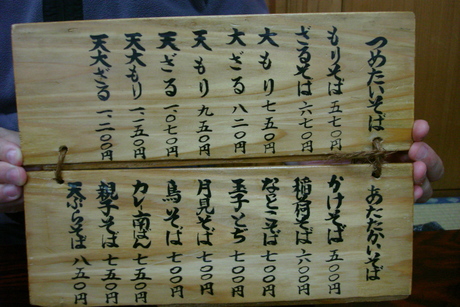 つめたいそば
もりそば 五七〇円
ざるそば 六七〇円
大もり 七五〇円
大ざる 八二〇円
天もり 九五〇円
天ざる 一、〇七〇円
天大もり 一、一五〇円
天大ざる 一、二〇〇円
あたたかいそば
かけそば 五〇〇円
稲荷そば 六〇〇円
なとこそば 七〇〇円
玉子とぢ 七〇〇円
月見そば 七〇〇円
鳥そば 七〇〇円
カレー南ばん 七五〇円
親子そば 七五〇円
天ぷらそば 八五〇円